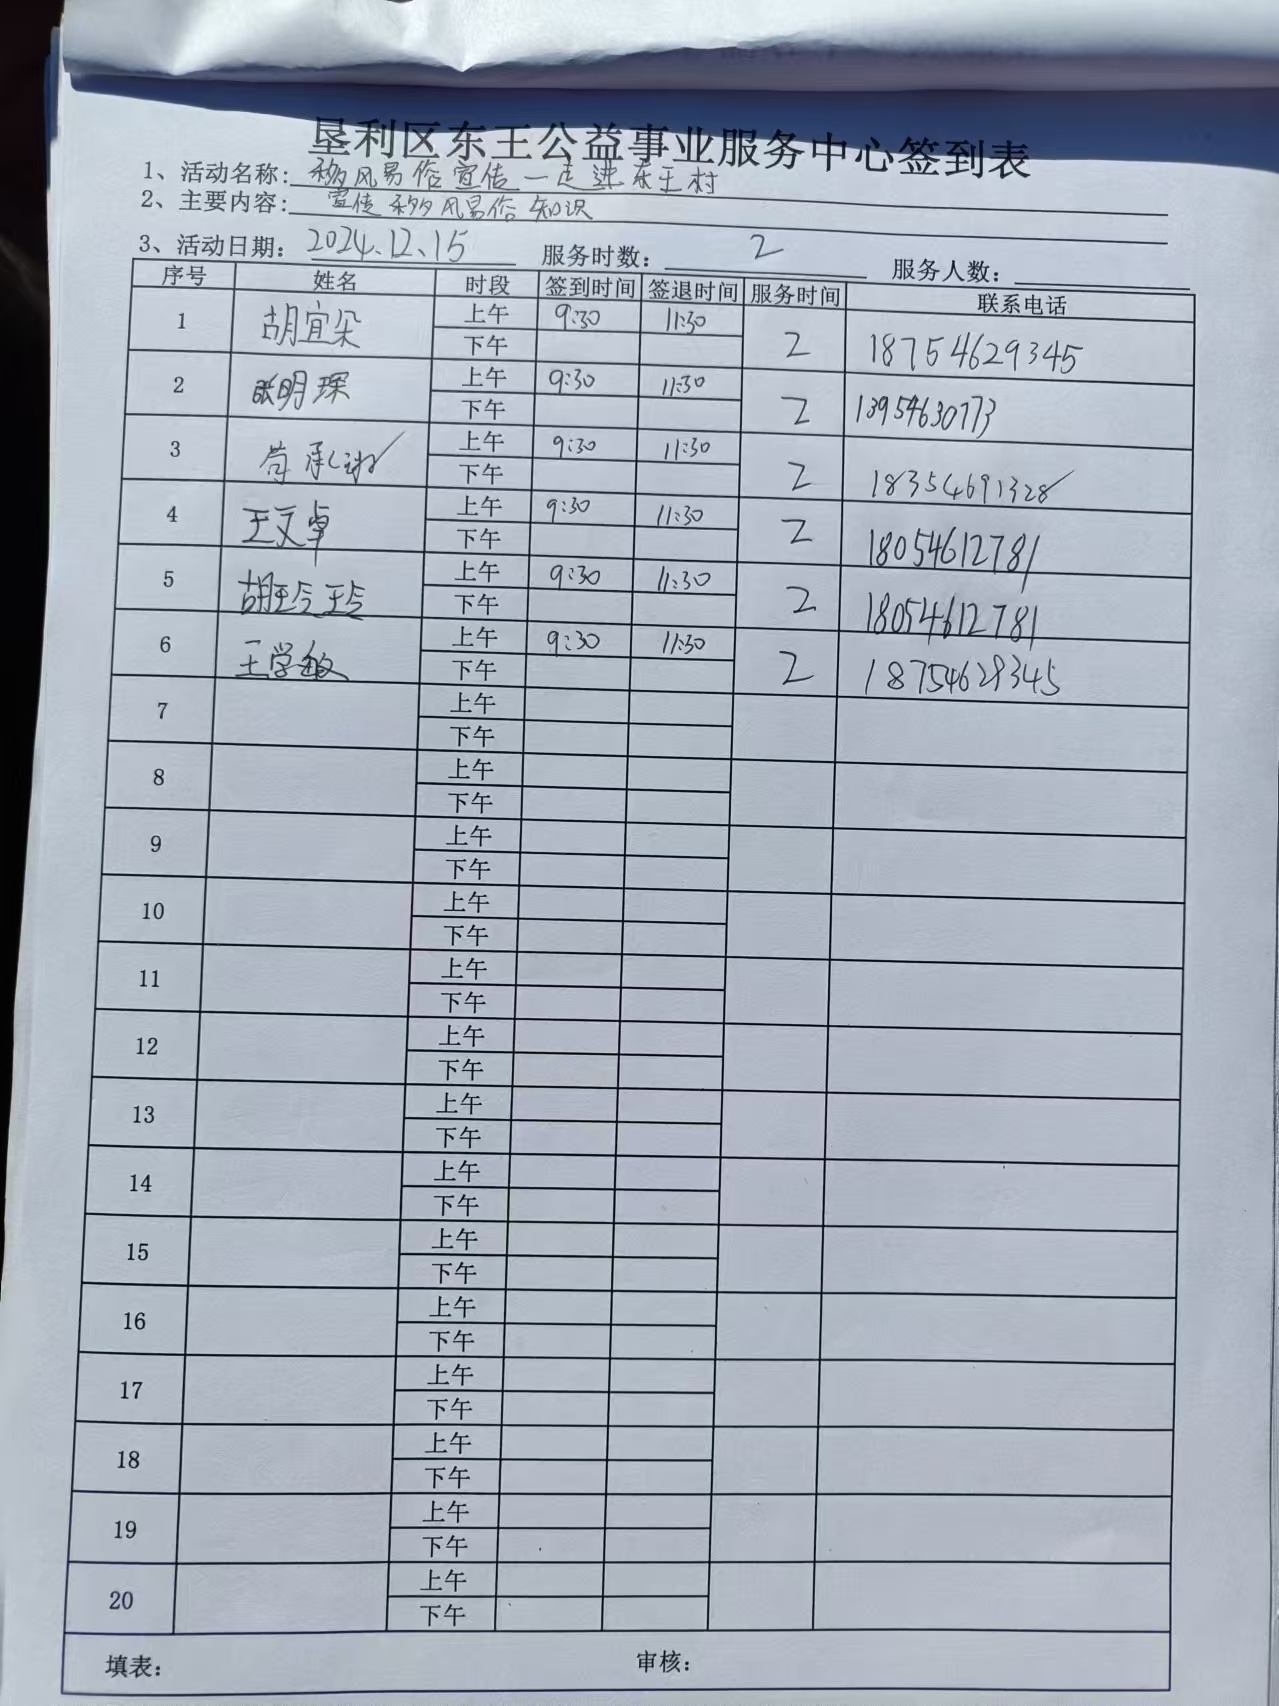 垦利区东王公益事业服务中心签到表
1、活动名称: 移风易俗宣传一走进东王村
2、主要内容: 宣传移风易俗知识
3、活动日期: 2024.12.15 服务时数: 2 服务人数:
序号 姓名 时段 签到时间 签退时间 服务时间 联系电话
1 胡宜朵 上午 9:30 11:30 2 18754629345
下午
2 张明琛 上午 9:30 11:30 2 13954630773
下午
3 上午 9:30 11:30 2 18354691328
下午
4 王文卓 上午 9:30 11:30 2 18054612781
下午
5 胡玲玲 上午 9:30 11:30 2 18054612781
下午
6 王学敏 上午 9:30 11:30 2 18754629345
下午
7 上午
下午
8 上午
下午
9 上午
下午
10 上午
下午
11 上午
下午
12 上午
下午
13 上午
下午
14 上午
下午
15 上午
下午
16 上午
下午
17 上午
下午
18 上午
下午
19 上午
下午
20 上午
下午
填表: 审核: